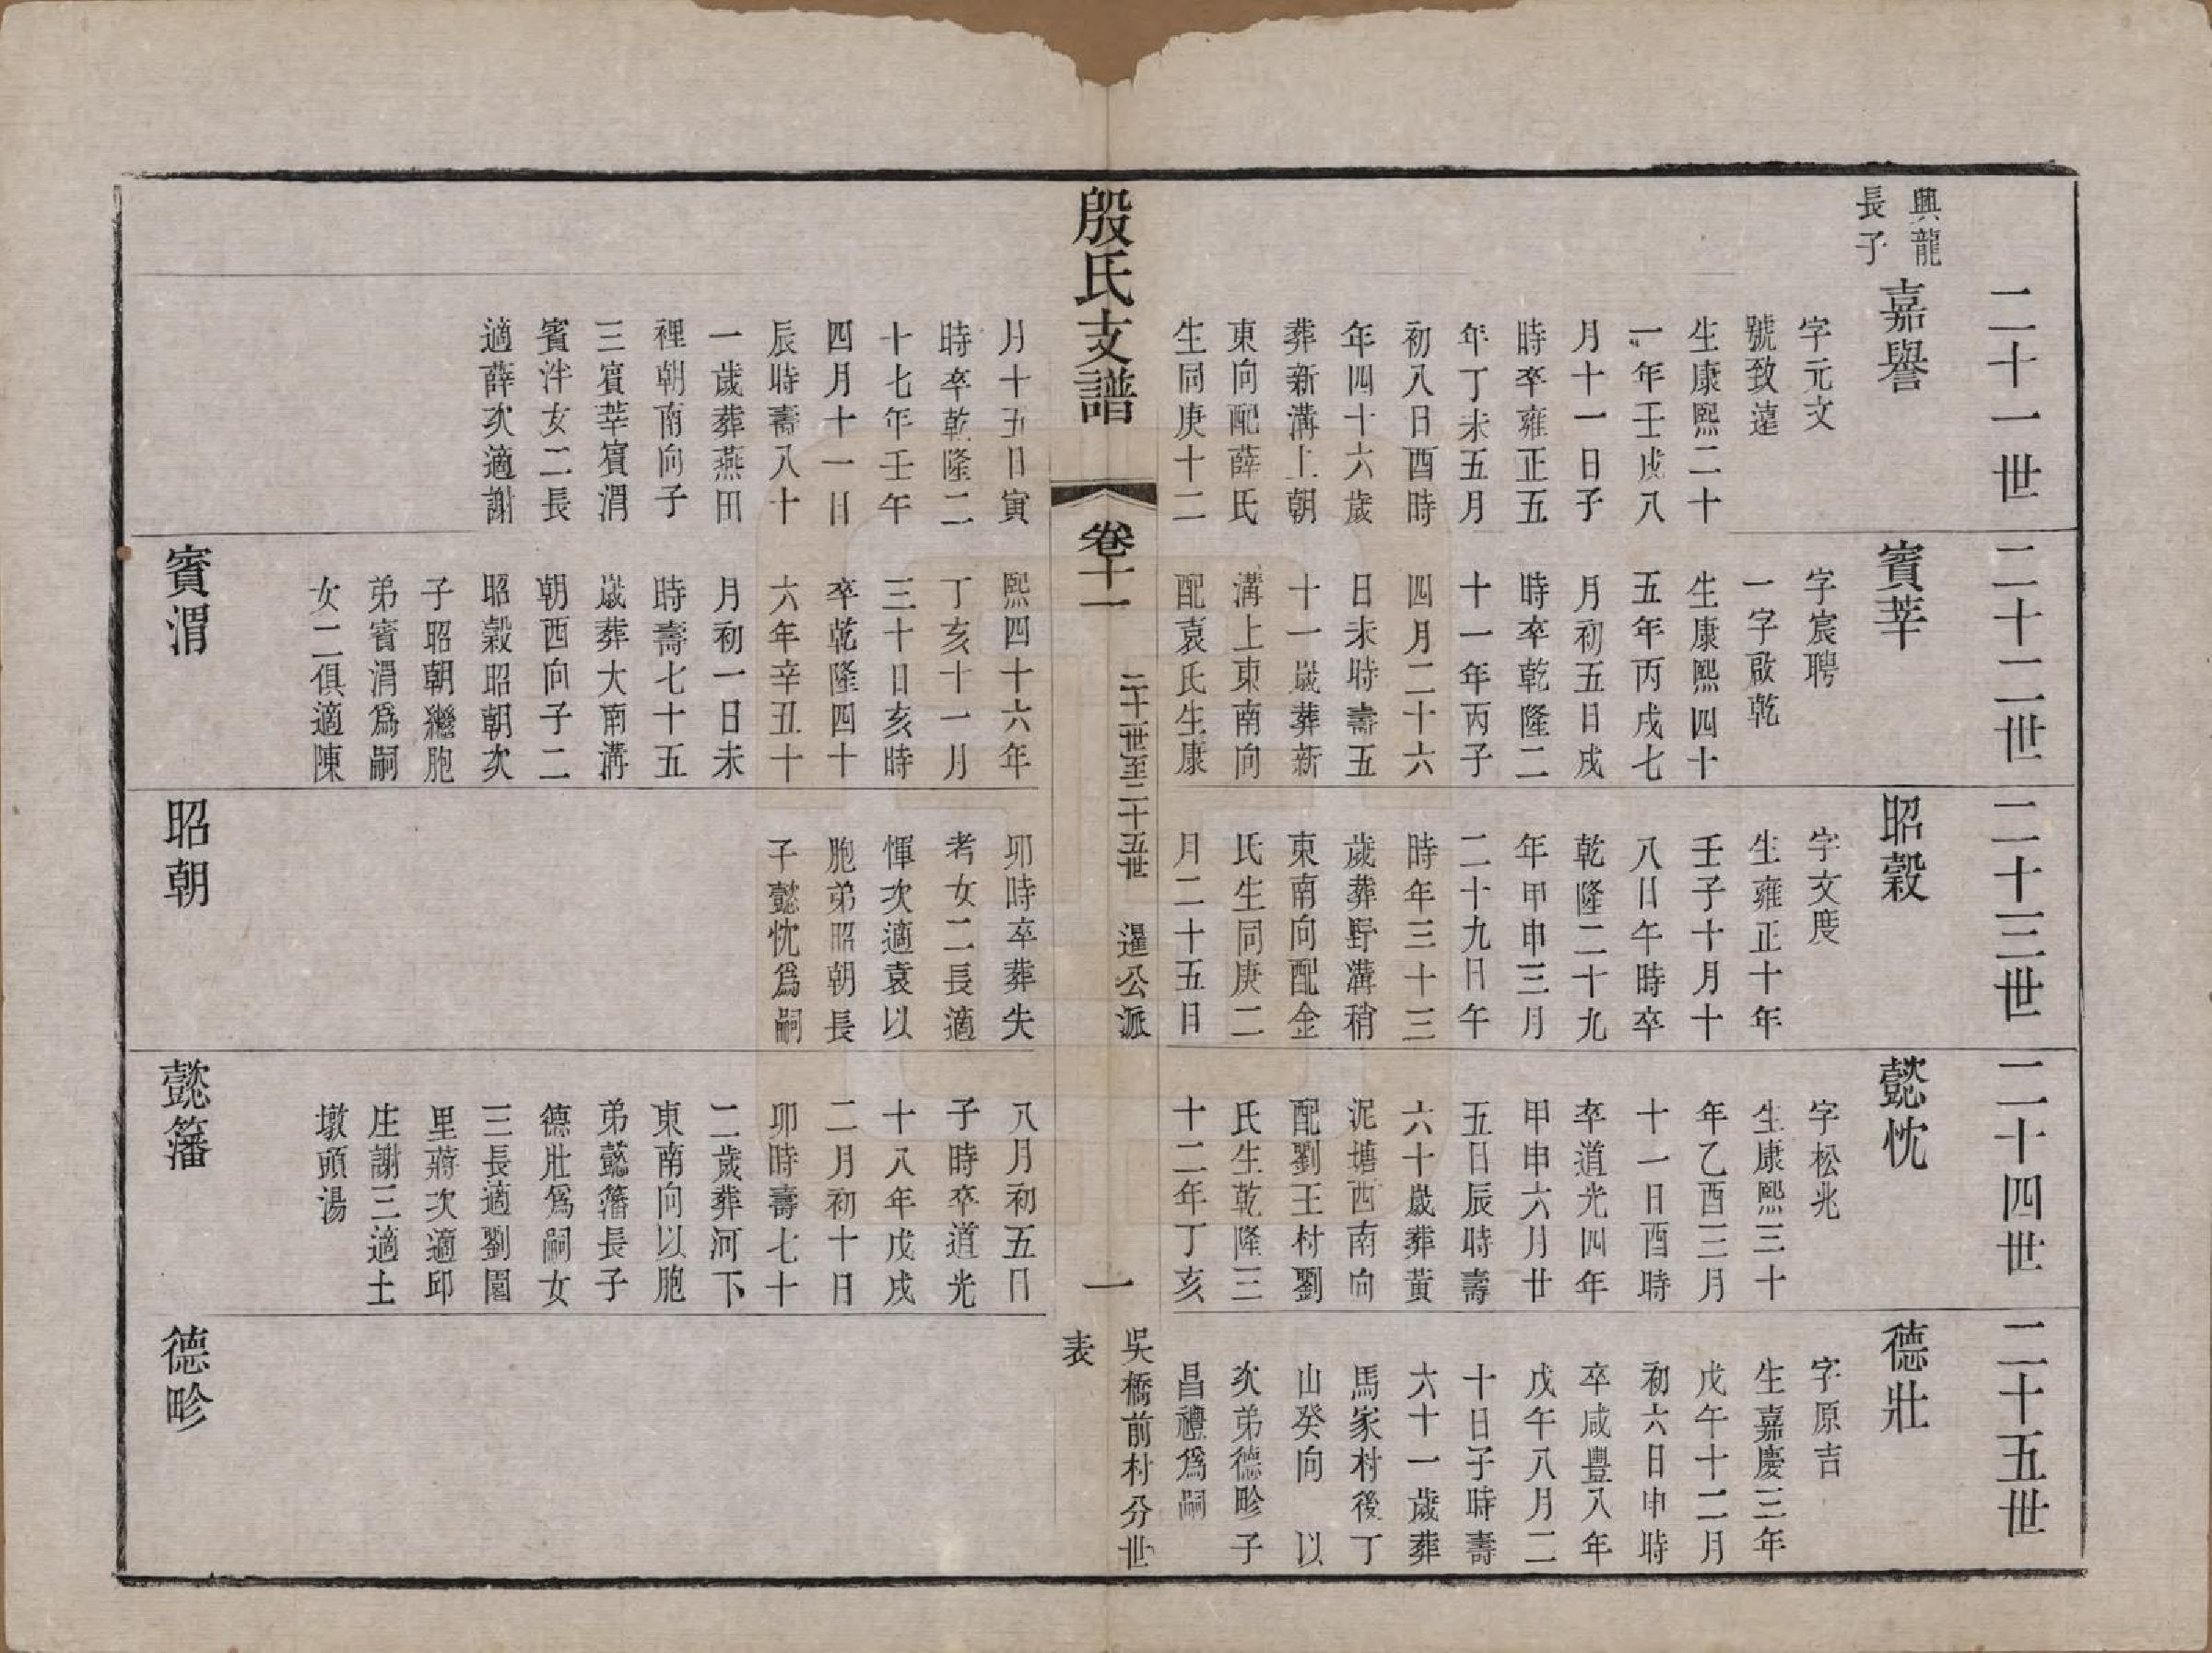 二十一世
興龍
長子
嘉譽
字元文
號致遠
生康熙二十
一年壬戌八
月十一日子
時卒雍正五
年丁未五月
初八日酉時
年四十六歲
葬新溝上朝
東向配薛氏
生同庚十二
月十五日寅
時卒乾隆二
十七年壬午
四月十一日
辰時壽八十
一歲葬燕田
裡朝南向子
三賓莘賓渭
賓泮女二長
適薛次適謝
二十二世
賓莘
字宸聘
一字啟乾
生康熙四十
五年丙戌七
月初五日戌
時卒乾隆二
十一年丙子
四月二十六
日未時壽五
十一歲葬新
溝上東南向
配袁氏生康
熙四十六年
丁亥十一月
三十日亥時
卒乾隆四十
六年辛丑十
月初一日未
時壽七十五
歲葬大南溝
朝西向子二
昭穀昭朝次
子昭朝繼胞
弟賓渭爲嗣
女二俱適陳
賓渭
二十三世
昭穀
字文度
生雍正十年
壬子十月十
八日午時卒
乾隆二十九
年甲申三月
二十九日午
時年三十三
歲葬野溝稍
東南向配金
氏生同庚二
月二十五日
卯時卒葬失
考女二長適
惲次適袁以
胞弟昭朝長
子懿忱爲嗣
昭朝
二十四世
懿忱
字松兆
生康熙三十
年乙酉三月
十一日酉時
卒道光四年
甲申六月廿
五日辰時壽
六十歲葬黃
泥塘西南向
配劉王村劉
氏生乾隆三
十二年丁亥
八月初五日
子時卒道光
十八年戊戌
二月初十日
卯時壽七十
二歲葬河下
東南向以胞
弟懿籓長子
德壯爲嗣女
三長適劉園
里蔣次適邱
庄謝三適土
墩頭湯
懿籓
二十五世
德壯
字原吉
生嘉慶三年
戊午十二月
初六日申時
卒咸豐八年
戊午八月二
十日子時壽
六十一歲葬
馬家村後丁
山癸向 以
次弟德畛子
昌禮爲嗣
德畛
殷氏支譜
卷十一
二十一世至二十五世 暹公派
一
吳橋前村分世
表